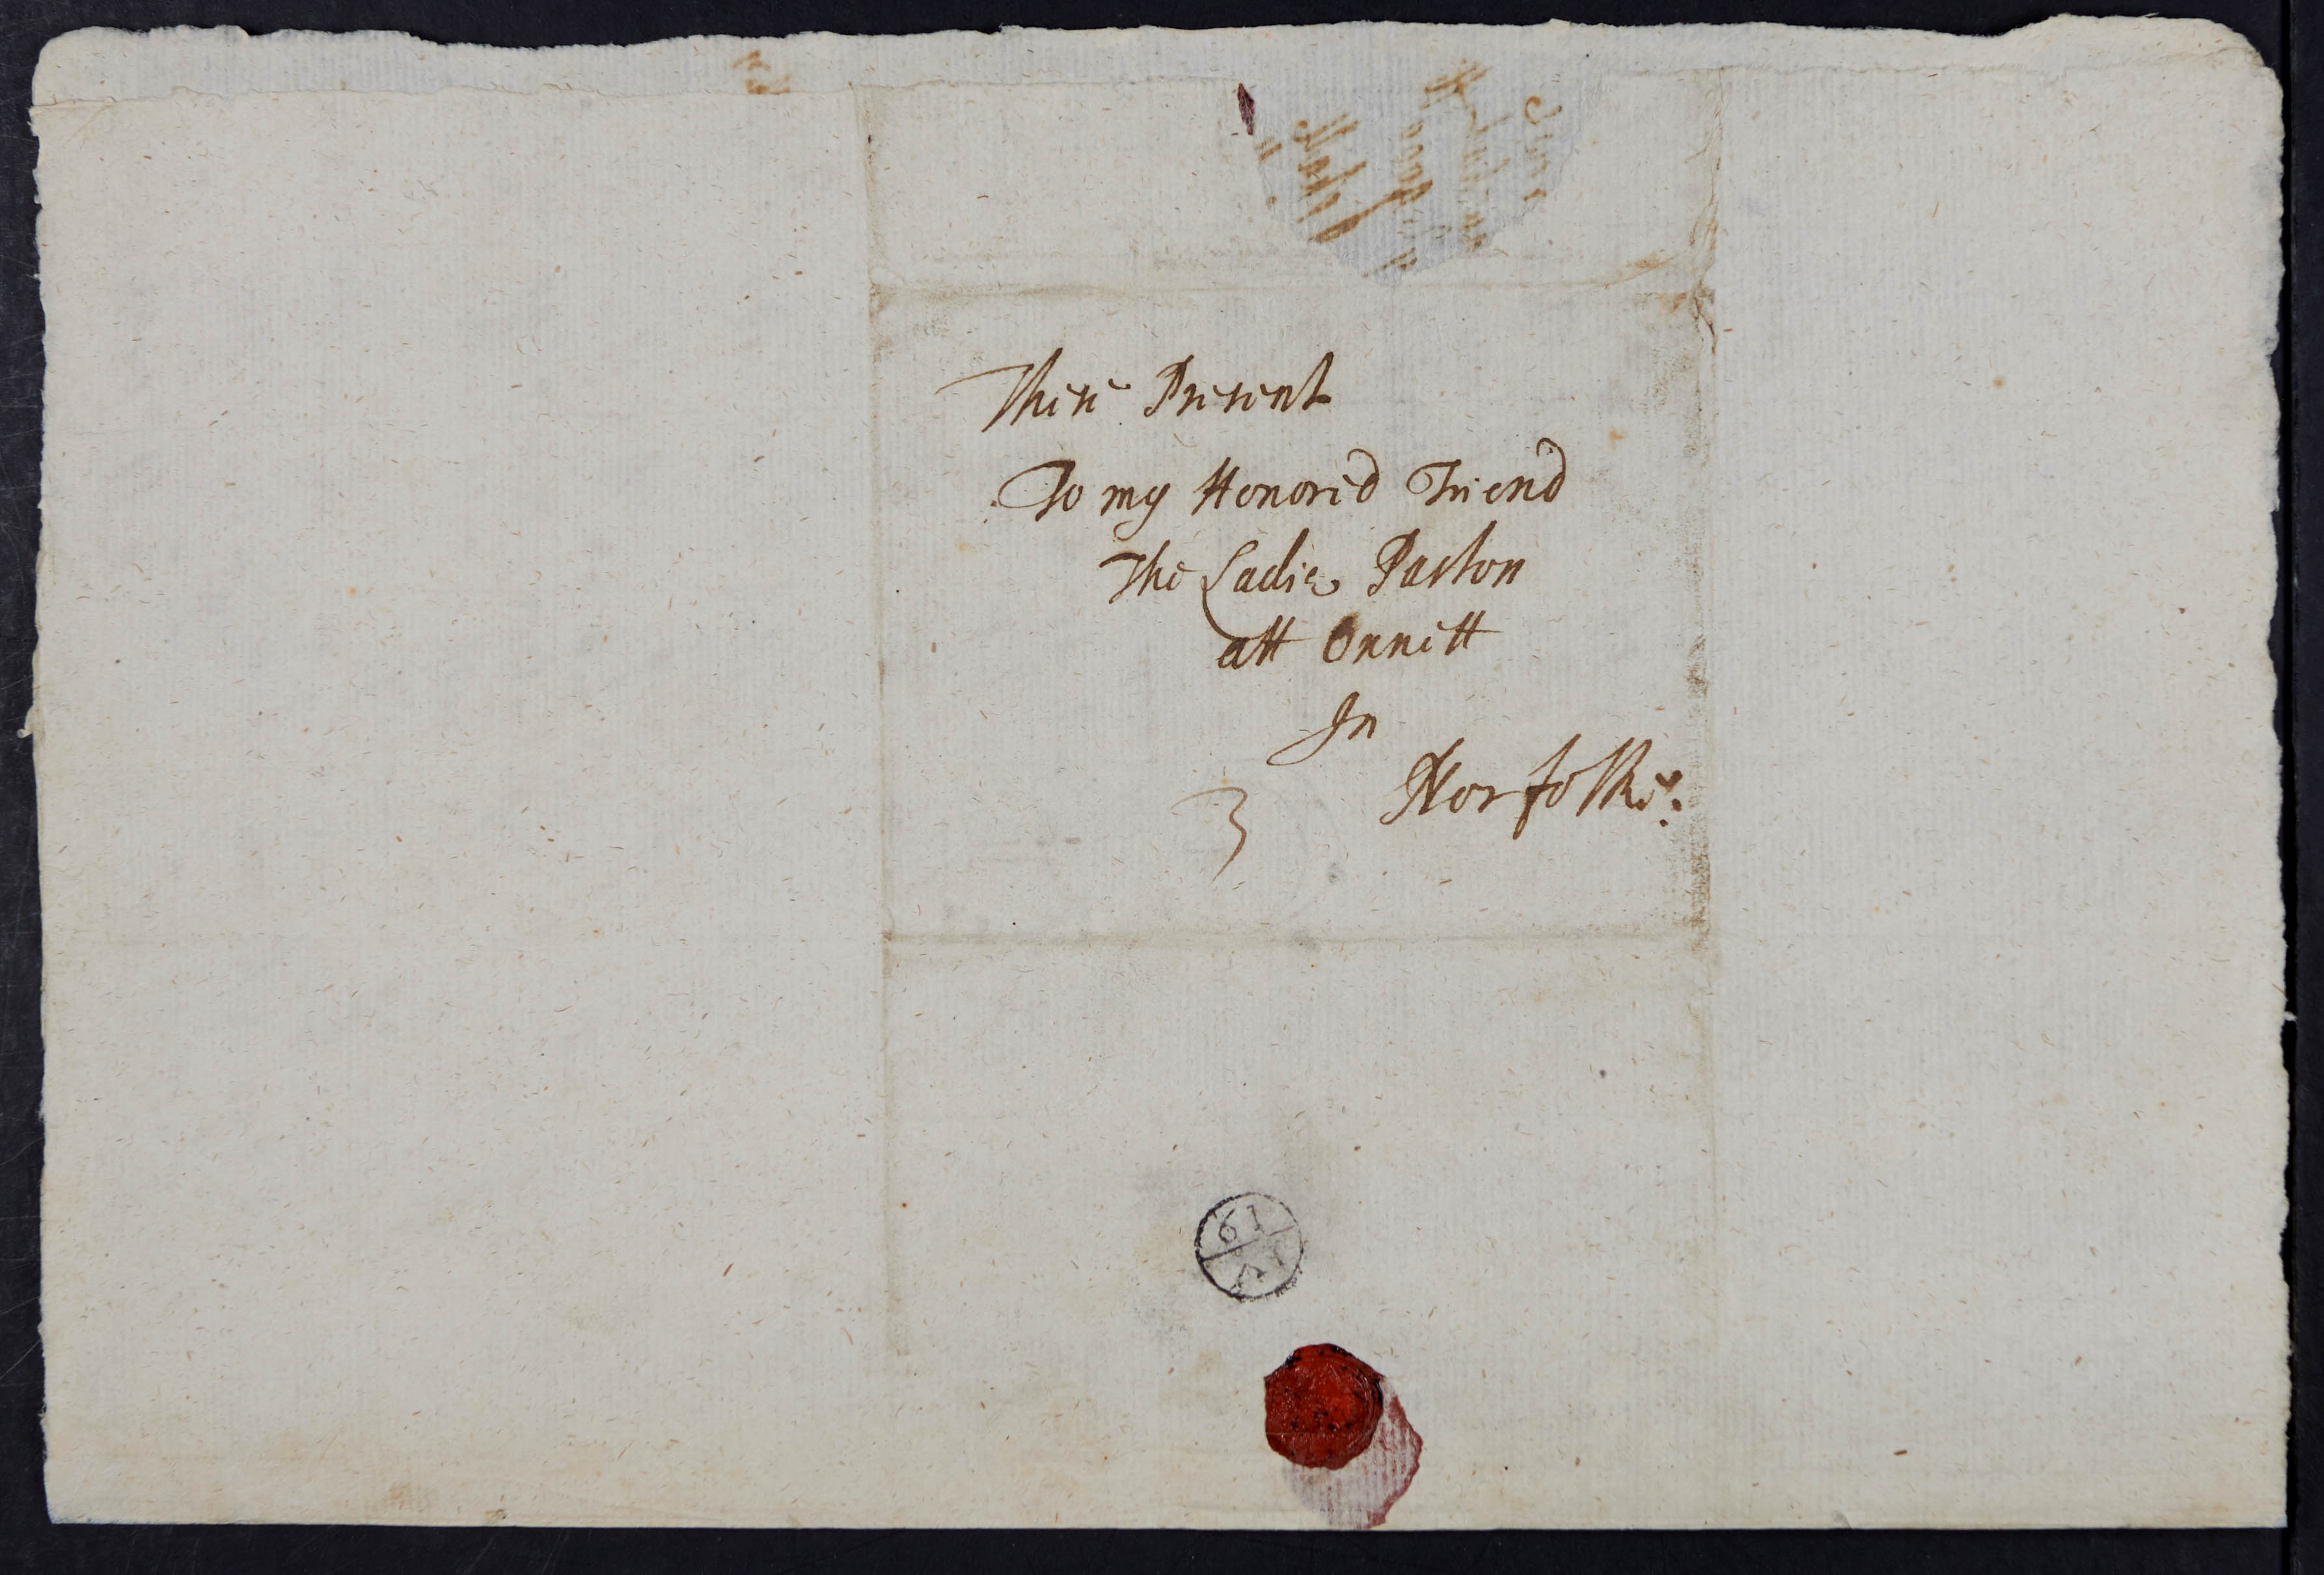 These Present
To my Honored Friend
The Ladie Paston
att Oxnett
In
Norfolke.
3
19